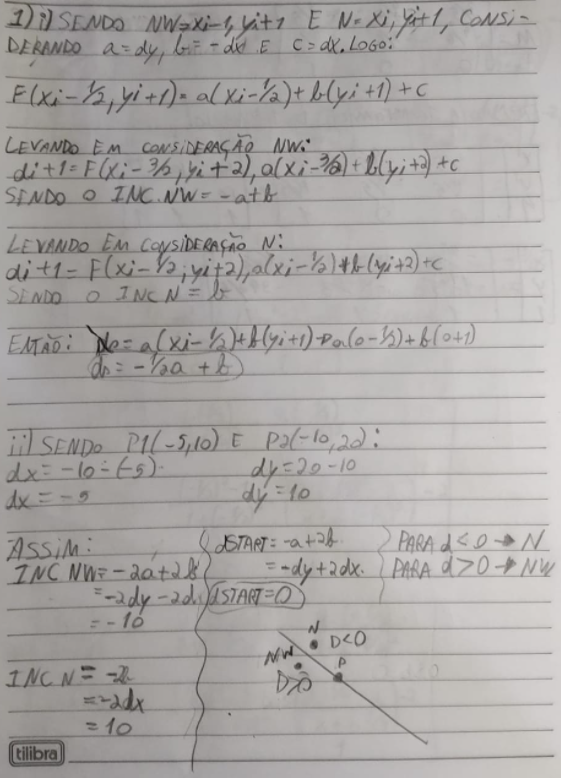 1) i) SENDO NW=xi-1, yi+1 E N=xi, yi+1, CONSI-
DERANDO a=dy, b=-dx E c=dx. LOGO:
F(xi-1/2, yi+1)= a(xi-1/2)+b(yi+1)+c
LEVANDO EM CONSIDERAÇÃO NW:
di+1=F(xi-3/2, yi+2), a(xi-3/2)+b(yi+2)+c
SENDO O INC.NW=-a+b
LEVANDO EM CONSIDERAÇÃO N:
di+1=F(xi-1/2, yi+2), a(xi-1/2)+b(yi+2)+c
SENDO O INC N=b
ENTÃO: = a(xi-1/2)+b(yi+1)→a(0-1/2)+b(0+1)
= -1/2a + b
ii) SENDO P1(-5,10) E P2(-10,20):
dx=-10-(-5) dy=20-10
dx=-5 dy=10
ASSIM:
INC NW=-2a+2b
=-2dy-2d
=-10
INC N=
=-2dx
=10
dSTART=-a+2b
=-dy+2dx
dSTART=0
PARA d<0→N
PARA d>0→NW
N D<0
NW
D>0
P
tilibra